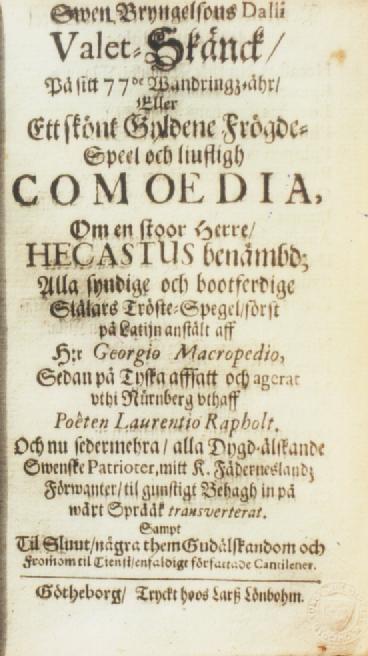 Swen Bryngelsons Dalii
Valet-Skänck/
På sitt 77de Wandringz-åhr/
Eller
Ett skönt Gyldene Frögde-
Speel och liufligh
COMOEDIA,
Om en stoor Herre/
HECASTUS benämbd;
Alla syndige och bootferdige
Siälars Tröste-Spegel/först
på Latijn anstält aff
H:r Georgio Macropedio,
Sedan på Tyska affsatt och agerat
vthi Nürnberg vthaff
Poëten Laurentio Rapholt.
Och nu sedermehra/alla Dygd-älskande
Swenske Patrioter, mitt K. Fädernesland;
Förwanter/til gunstigt Behagh in på
wårt Språåk transverterat.
Sampt
Til Sluut/några them Gudälskandom och
Fromom til Tienst/enfaldigt författade Cantilener.
Götheborg/ Tryckt hoos Larß Lönbohm.